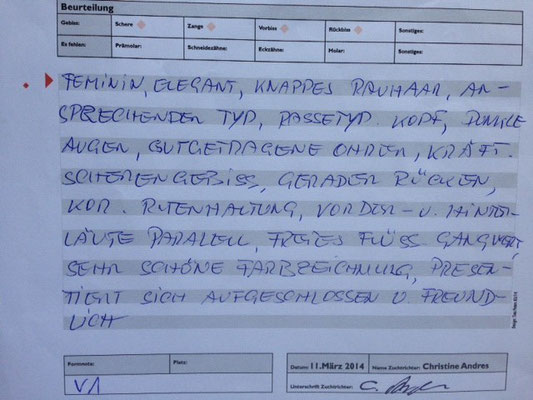 Beurteilung
Gebiss: Schere Zange Vorbiss Rückbiss Sonstiges:
Es fehlen: Prämolar: Schneidezähne: Eckzähne: Molar: Sonstiges:
FEMININ, ELEGANT, KNAPPES RAUHAAR, AN-
SPRECHENDER TYP, RASSETYP. KOPF, DUNKLE
AUGEN, GUTGETRAGENE OHREN, KRÄFT.
SCHERENGEBISS, GERADER RÜCKEN,
KOR. RUTENHALTUNG, VORDER- U. HINTER-
LÄUFE PARALLELL, FREIES FLÜSS. GANGWERK,
SEHR SCHÖNE FARBZEICHNUNG, PRESEN-
TIERT SICH AUFGESCHLOSSEN U. FREUND-
LICH
Formnote: Platz: Datum: 11.März 2014 Name Zuchtrichter: Christine Andres
V1 Unterschrift Zuchtrichter: C.